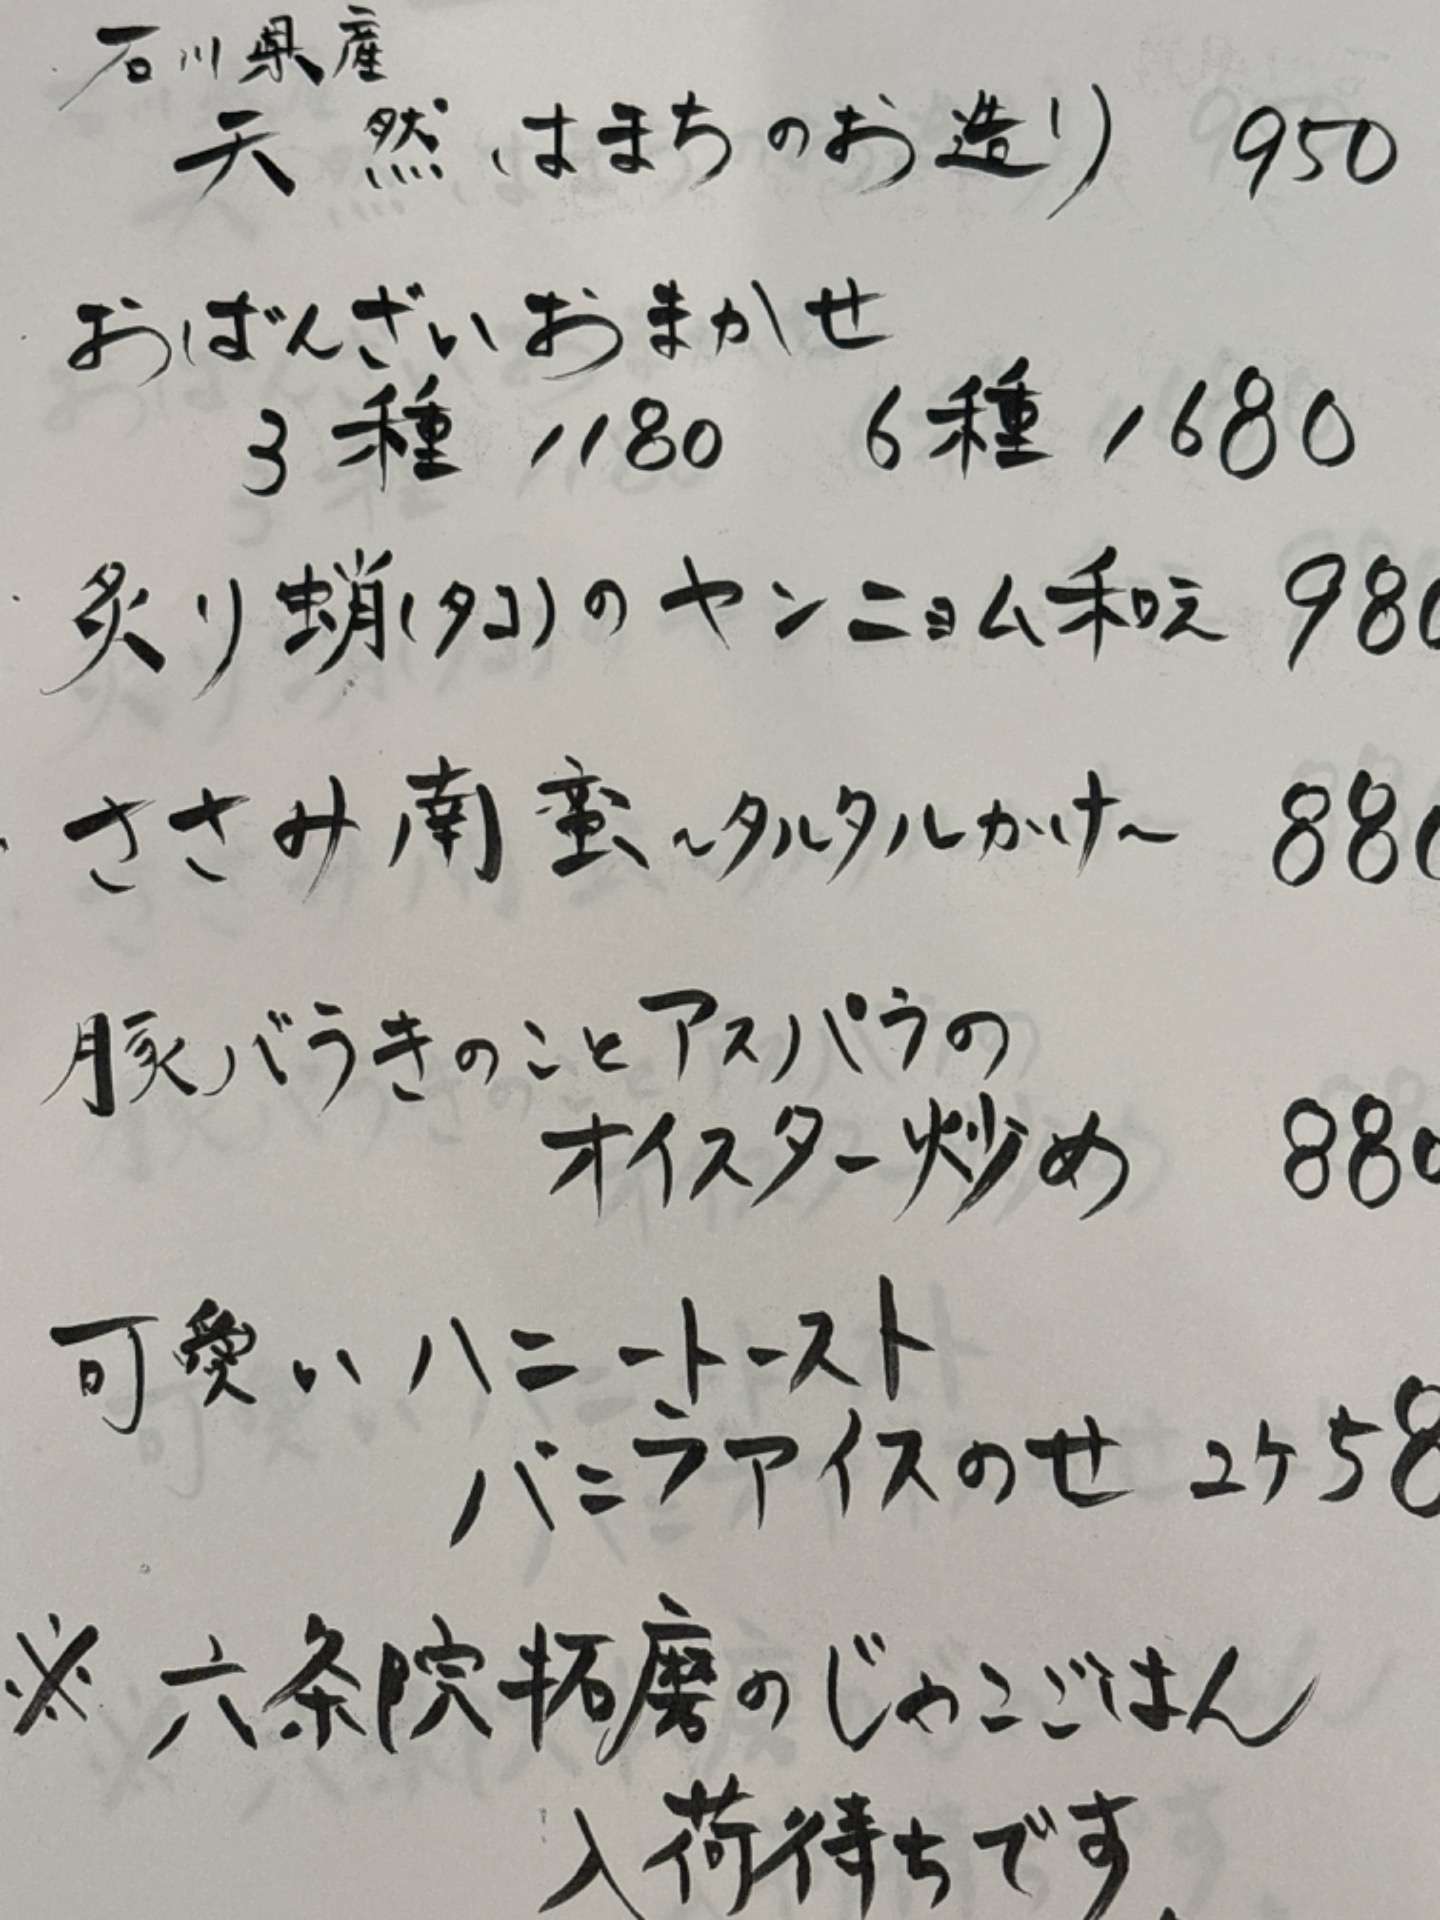 石川県産
天然はまちのお造り 950
おばんざいおまかせ
3種 1180 6種 1680
炙り蛸(タコ)のヤンニョム和え 980
ささみ南蛮〜タルタルかけ〜 880
豚バラきのことアスパラの
オイスター炒め 880
可愛いハニートースト
バニラアイスのせ 2ケ 58
※六条院拓磨のじゃこごはん
入荷待ちです